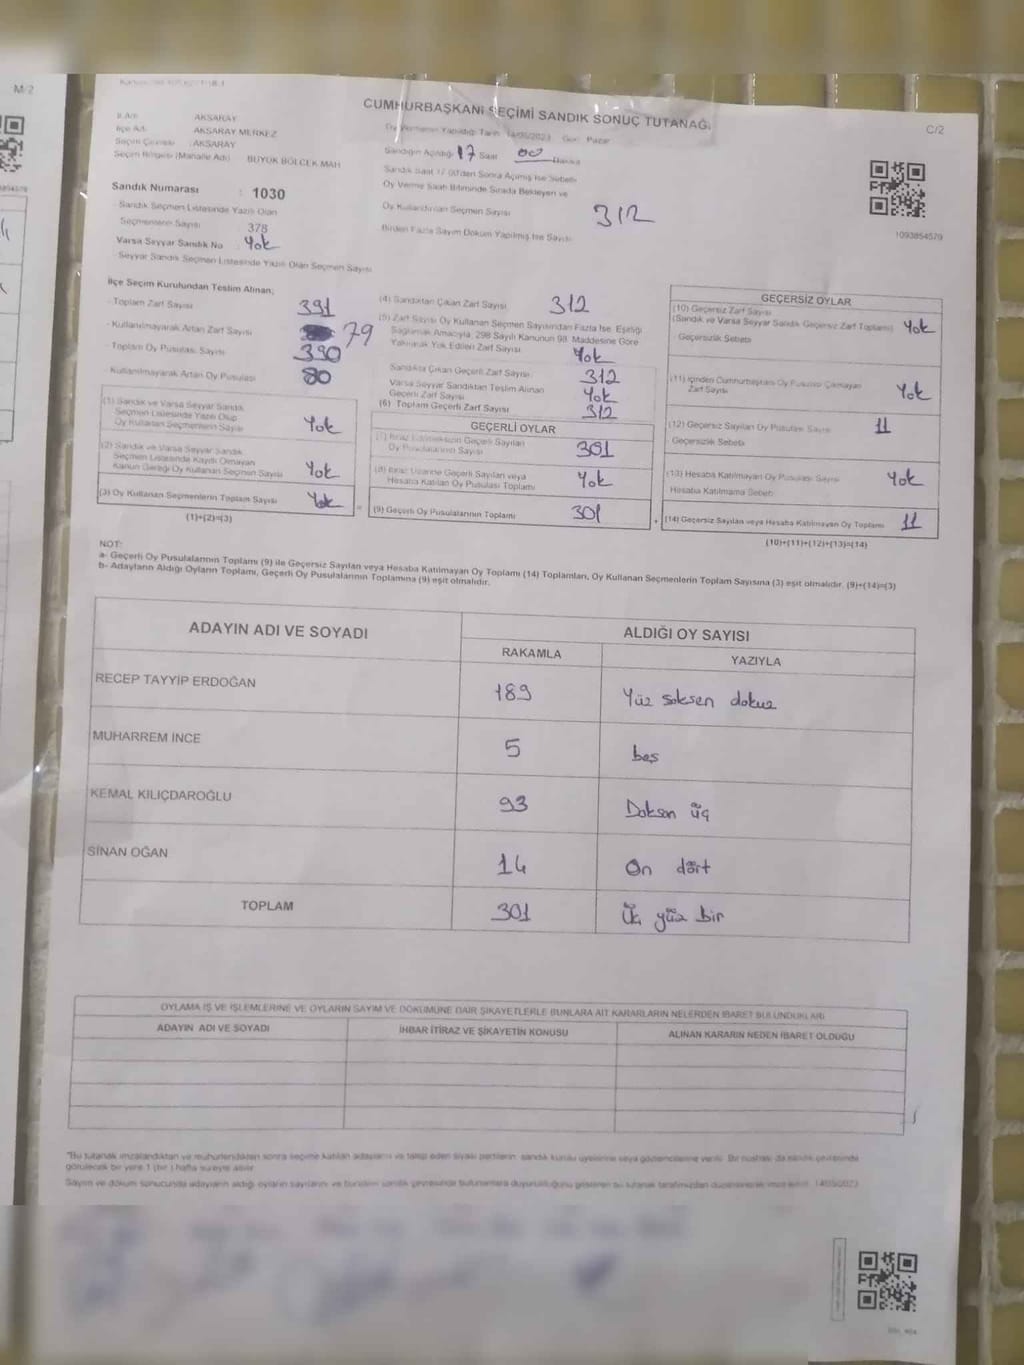 M/2
CUMHURBAŞKANI SEÇİMİ SANDIK SONUÇ TUTANAĞI
C/2
İl Adı AKSARAY
İlçe Adı AKSARAY MERKEZ
Seçim Çevresi : AKSARAY
Seçim Bölgesi (Mahalle Adı) BÜYÜK BÖLCEK MAH
Oy Vermenin Yapıldığı Tarih 14/05/2023 Gün: Pazar
Sandığın Açıldığı 17 Saat 00 Dakika
Sandık Saat 17.00'den Sonra Açılmış İse Sebebi
Oy Verme Saati Bitiminde Sırada Bekleyen ve
Oy Kullandırılan Seçmen Sayısı 312
Birden Fazla Sayım Döküm Yapılmış İse Sayısı
1093854579
Sandık Numarası : 1030
Sandık Seçmen Listesinde Yazılı Olan
Seçmenlerin Sayısı 378
Varsa Seyyar Sandık No : Yok
Seyyar Sandık Seçmen Listesinde Yazılı Olan Seçmen Sayısı
İlçe Seçim Kurulundan Teslim Alınan;
- Toplam Zarf Sayısı 391
- Kullanılmayarak Artan Zarf Sayısı 79
- Toplam Oy Pusulası Sayısı 390
- Kullanılmayarak Artan Oy Pusulası 80
(1) Sandık ve Varsa Seyyar Sandık
Seçmen Listesinde Yazılı Olup
Oy Kullanan Seçmenlerin Sayısı Yok
(2) Sandık ve Varsa Seyyar Sandık
Seçmen Listesinde Kaydı Olmayan
Kanun Gereği Oy Kullanan Seçmen Sayısı Yok
(3) Oy Kullanan Seçmenlerin Toplam Sayısı Yok
(1)+(2)=(3)
(4) Sandıktan Çıkan Zarf Sayısı 312
(5) Zarf Sayısı Oy Kullanan Seçmen Sayısından Fazla İse, Eşitliği
Sağlamak Amacıyla, 298 Sayılı Kanunun 98. Maddesine Göre
Yakılarak Yok Edilen Zarf Sayısı Yok
Sandıkta Çıkan Geçerli Zarf Sayısı 312
Varsa Seyyar Sandıktan Teslim Alınan
Geçerli Zarf Sayısı Yok
(6) Toplam Geçerli Zarf Sayısı 312
GEÇERLİ OYLAR
(7) İtiraz Edilmeksizin Geçerli Sayılan
Oy Pusulalarının Sayısı 301
(8) İtiraz Üzerine Geçerli Sayılan veya
Hesaba Katılan Oy Pusulası Toplamı Yok
(9) Geçerli Oy Pusulalarının Toplamı 301
GEÇERSİZ OYLAR
(10) Geçersiz Zarf Sayısı
(Sandık ve Varsa Seyyar Sandık Geçersiz Zarf Toplamı) Yok
- Geçersizlik Sebebi
(11) İçinden Cumhurbaşkanı Oy Pusulası Çıkmayan
Zarf Sayısı Yok
(12) Geçersiz Sayılan Oy Pusulası Sayısı 11
Geçersizlik Sebebi
(13) Hesaba Katılmayan Oy Pusulası Sayısı Yok
Hesaba Katılmama Sebebi
(14) Geçersiz Sayılan veya Hesaba Katılmayan Oy Toplamı 11
(10)+(11)+(12)+(13)=(14)
NOT:
a- Geçerli Oy Pusulalarının Toplamı (9) ile Geçersiz Sayılan veya Hesaba Katılmayan Oy Toplamı (14) Toplamları, Oy Kullanan Seçmenlerin Toplam Sayısına (3) eşit olmalıdır. (9)+(14)=(3)
b- Adayların Aldığı Oyların Toplamı, Geçerli Oy Pusulalarının Toplamına (9) eşit olmalıdır.
ADAYIN ADI VE SOYADI ALDIĞI OY SAYISI
RAKAMLA YAZIYLA
RECEP TAYYİP ERDOĞAN 189 Yüz seksen dokuz
MUHARREM İNCE 5 beş
KEMAL KILIÇDAROĞLU 93 Doksan üç
SİNAN OĞAN 14 On dört
TOPLAM 301 Üç yüz bir
OYLAMA İŞ VE İŞLEMLERİNE VE OYLARIN SAYIM VE DÖKÜMÜNE DAİR ŞİKAYETLERLE BUNLARA AİT KARARLARIN NELERDEN İBARET BULUNDUKLARI
ADAYIN ADI VE SOYADI İHBAR İTİRAZ VE ŞİKAYETİN KONUSU ALINAN KARARIN NEDEN İBARET OLDUĞU
"Bu tutanak imzalandıktan ve mühürlendikten sonra seçime katılan adayların ve talep eden siyasi partilerin sandık kurulu üyelerine veya gözlemcilerine verilir. Bir nüshası da sandık çevresinde
görülecek bir yere 1 (bir) hafta süreyle asılır.
Sayım ve döküm sonucunda adayların aldığı oyların sayılarını ve bunların sandık çevresinde bulunanlara duyurulduğunu gösteren bu tutanak tarafımızdan düzenlenerek imza edildi. 14/05/2023